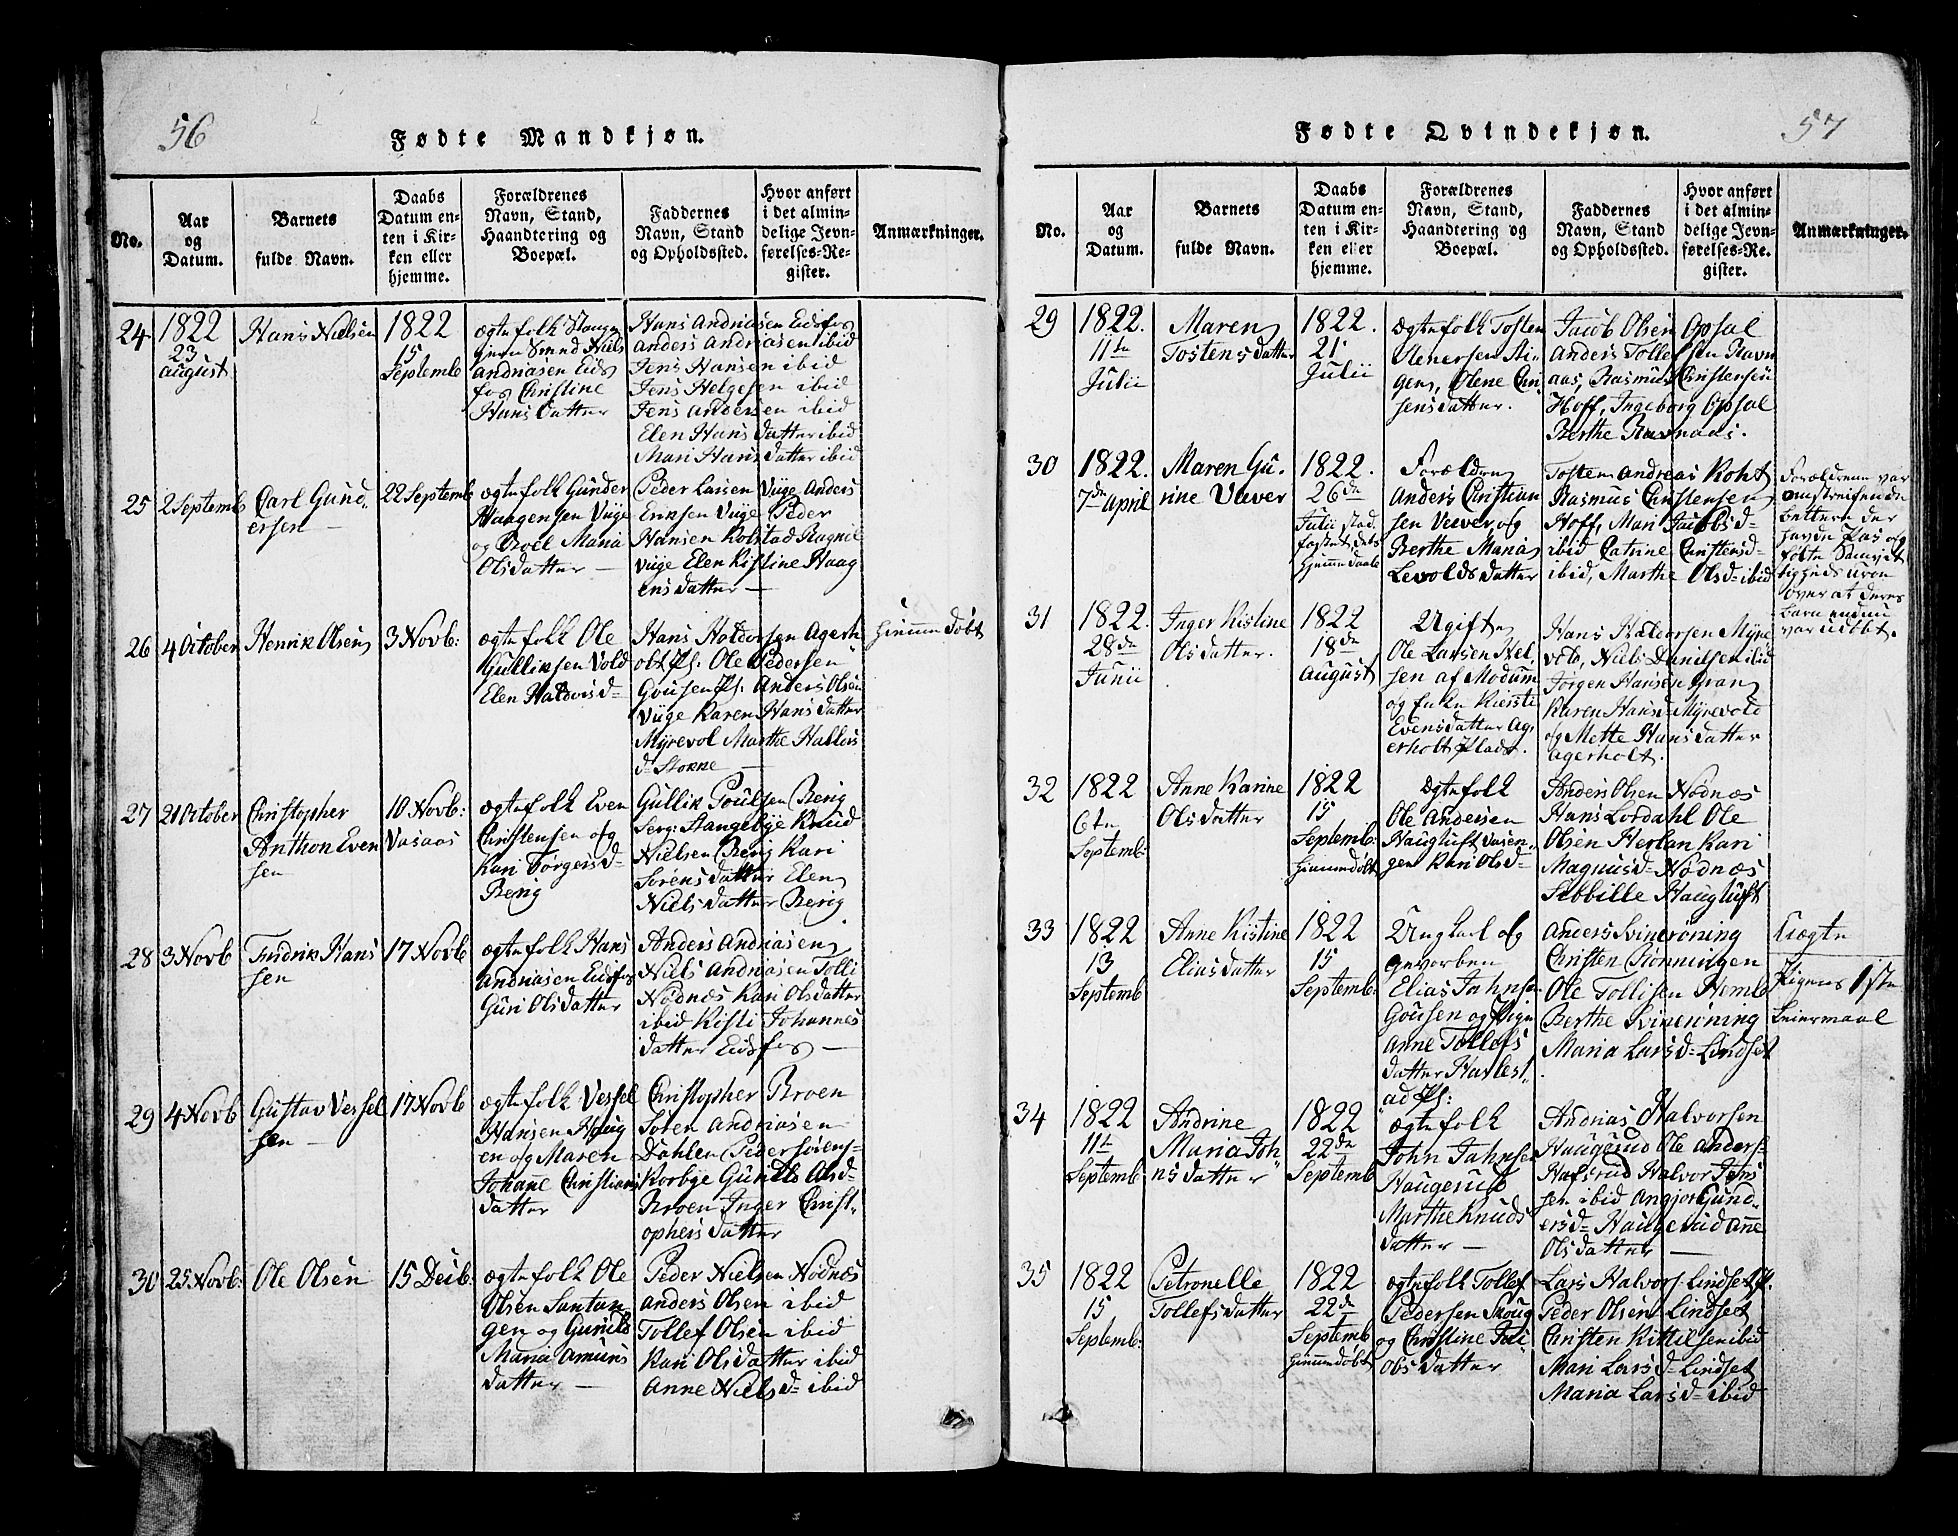 56
Fødte Mandkjøn.
No.
Aar
og
Datum.
Barnets
fulde Navn.
Daabs
Datum en-
ten i Kir-
ken eller
hjemme.
Forældrenes
Navn, Stand,
Haandtering og
Boepæl.
Faddernes
Navn, Stand
og Opholdssted.
Hvor anført
i det almin-
delige Jevn-
førelses-Re-
gister.
Anmærkninger.
24
1822
23
august
Hans Nielsen
1822
15
Septemb
ægtefolk
Smed Niels
andriasen Eids
fos Christine
Hans Datter
Hans Andriasen Eidsfos
Anders Andriasen ibid
Jens Hansen ibid
Jens Helgesen ibid
Jens Andersen ibid
Elen Hans Datter ibid
Mari Hans Datter ibid
25
2 Septemb
Carl Gund
ersen
22 Septemb
ægtefolk Gunder
Haagensen Viige
og Maria
Olsdatter
Peder Larsen Viige Anders
Eriksen Viige Peder
Hansen Kolstad Ragnil
Viige Elen Kistine Haag
ensdatter
26
4 October
Henrik Olsen
3 Novb:
ægtefolk Ole
Gulliksen Vold
Elen
Hans Haldorsen Agerh
olt Pl. Ole Pedersen
Gousen Pl. Anders Olsen
Viige Karen Hans Datter
Myrevol Marthe
d=
hiemme døbt
27
21 October
Christopher
Anthon Even
sen
10 Novb:
Vasaas
ægtefolk Even
Christensen og
Kari Torgersd=
Berig
Gullik Poulsen Berig
Serg: Stangebye Knud
Nielsen Berig Kari
Sørens datter Elen
Niels datter Berig
28
3 Novb
Fredrik Hans
sen
17 Novb
ægtefolk Hans
Andriasen Eidsfos
Guri Olsdatter
Anders Andriasen
Niels Andriasen Tolli
Nødnæs Kari Olsdatter
ibid Kisti Johannes
datter Eidsfos
29
4 Novb
Gustav Vessel
sen
17 Novb
ægtefolk Vessel
Hansen Houg
en og Maren
Johane Christians
datter
Christopher Broen
Søren Andriasen
Dahlen Peder Sørens-
Korbye Gunild Olsd=
Broen Inger Christ
ophersdatter
30
25 Novb:
Ole Olsen
15 Decb:
ægtefolk Ole
Olsen
gen og Gunild
Maria Amuns
datter
Peder Nielsen Nødnæs
Anders Olsen ibid
Tollef Olsen ibid
Kari Olsdatter ibid
Anne Nielsd= ibid
57
Fødte Qvindekjøn.
No.
Aar
og
Datum.
Barnets
fulde Navn.
Daabs
Datum en-
ten i Kir-
ken eller
hjemme.
Forældrenes
Navn, Stand,
Haandtering og
Boepæl.
Faddernes
Navn, Stand
og Opholdssted.
Hvor anført
i det almin-
delige Jevn-
førelses-Re-
gister.
Anmærkninger.
29
1822.
11te
Julii
Maren
Tostensdatter
1822.
21
Julii
ægtefolk Tosten
gen, Olene Chri
sensdatter.
Jacob Olsen Opsal
Anders Tollefsen Ravn
aas, Rasmus Christensen
Hoff, Ingeborg Opsal
Berthe Ravnaas.
30
1822.
7de April
Maren Gu-
rine Vever
1822.
26de
Julii stad
fæstet dets
hiemme daab
Forældre
Anders Christian
sen Vever og
Berthe Maria
Levolds datter
Tosten Andreas Koht
Rasmus Christensen
Hoff, Mari Jacobsd=
ibid Catrine Christensd=
ibid, Marthe Olsd= ibid
Forældrene var
omstreifende
betlere der
havde Pas og
over at deres
barn endnu
var udøbt.
31
1822.
28de
Junii
Inger Kistine
Olsdatter.
1822
18de
August
Ugifte
Ole Larsen Hel
sen af Modum
og Enke Kiersti
Evensdatter Ag
erholt Plads.
Hans Haldorsen Myre
vold, Niels Danielsen ibid
Jørgen Hansen Gran
Karen Hansd= Myrevold
og Mette Hansdatter
Agerholt.
32
1822
6te
Septemb:
Anne Karine
Olsdatter
1822
15
Septemb:
hiemmedøbt
ægtefolk
Ole Andersen
Haugluft
gen Kari Olsd=
Anders Olsen Nødnæs
Hans Lordahl Ole
Olsen Herlan Kari
Magnusd= Nødnæs
Sibbille Haugluft
33
1822
13
Septemb
Anne Kistine
Eliasdatter
1822
15
Septemb:
Ungkarl og
gevorben
Elias Jahnsen
Gousen og Pige
Anne Tollefs
datter Harlest
ad Pl:
Anders Svinerøning
Christen Rønningen
Ole Tollisen Hemb
Berthe Svinerøning
Maria Larsd= Lindset
Uægte
Pigens 1ste
Leiermaal
34
1822
11te
Septemb
Andrine
Maria Joh
nsdatter
1822
22de
Septemb
ægtefolk
John Jahnsen
Haugerud
Marthe Knuds
datter
Andrias Halvorsen
Haugerud Ole Anders-
Hafsrud Halvor Jens
sen ibid Angjor Gund
ersd= Haugerud Ane
Olsdatter
35
1822
15
Septemb:
Petronelle
Tollefsdatter
1822
22de
Septemb
hiemmedøbt
ægtefolk Tollef
Pedersen Skoug
og Christine Jac
obsdatter
Lars Halvors Lindset Pl.
Peder Olsen Lindset
Christen Kittilsen ibid
Mari Larsd= Lindset
Maria Larsd= ibid